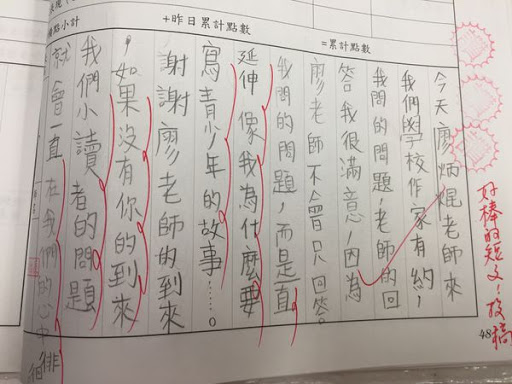 點小計 +昨日累計點數 =累計點數
今天廖炳焜老師來
我們學校作家有約,
我問的問題,老師的回
答我很滿意,因為
廖老師不會只回答。
我問的問題,而是一直
延伸像我為什麼要
寫青少年的故事……。
謝謝廖老師的到來
,如果沒有你的到來
我們小讀者的問題
就會一直在我們的心中徘徊
好棒的短文!投稿
48